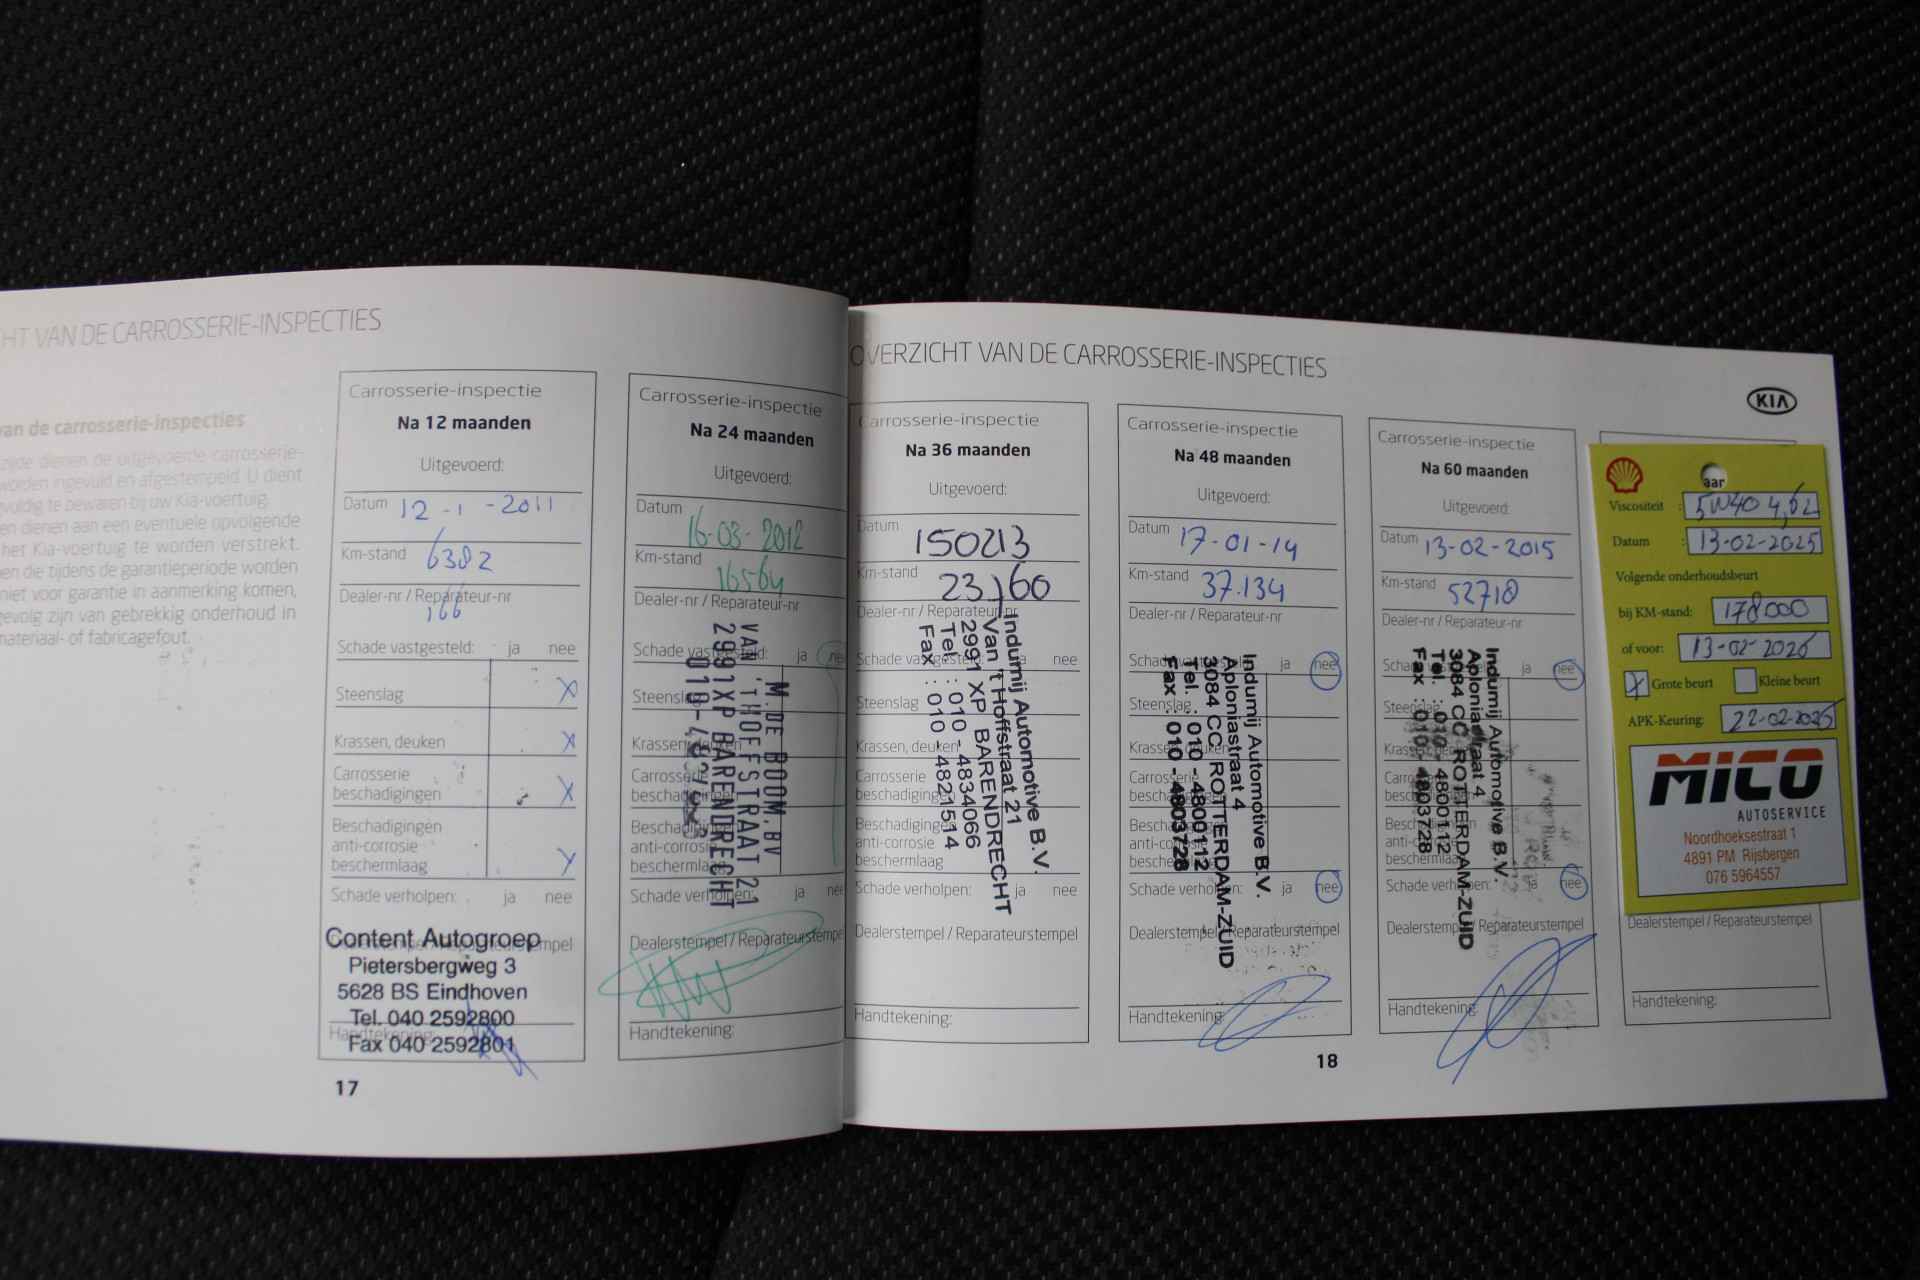 HT VAN DE CARROSSERIE-INSPECTIES
van de carrosserie-inspecties
zijde dienen de uitgevoerde carrosserie-
worden ingevuld en afgestempeld. U dient
gvuldig te bewaren bij uw Kia-voertuig.
en dienen aan een eventuele opvolgende
het Kia-voertuig te worden verstrekt.
en die tijdens de garantieperiode worden
niet voor garantie in aanmerking komen,
gevolg zijn van gebrekkig onderhoud in
materiaal- of fabricagefout.
Carrosserie-inspectie
Na 12 maanden
Uitgevoerd:
Datum 12-1-2011
Km-stand 6382
Dealer-nr / Reparateur-nr
166
Schade vastgesteld: ja nee
Steenslag X
Krassen, deuken X
Carrosserie
beschadigingen X
Beschadigingen
anti-corrosie
beschermlaag X
Schade verholpen: ja nee
Content Autogroep
Pietersbergweg 3
5628 BS Eindhoven
Tel. 040 2592800
Handtekening:
Fax 040 2592801
17
Carrosserie-inspectie
Na 24 maanden
Uitgevoerd:
Datum 16-03-2012
Km-stand 16564
Dealer-nr / Reparateur-nr
Schade vastgesteld: ja nee
Steenslag
Krassen, deuken
Carrosserie
beschadigingen
Beschadigingen
anti-corrosie
beschermlaag
Schade verholpen: ja nee
M. DE BOOM, BV
VAN 'T HOFFSTRAAT 21
2991XP BARENDRECHT
Dealerstempel / Reparateurstempel
Handtekening:
OVERZICHT VAN DE CARROSSERIE-INSPECTIES
KIA
Carrosserie-inspectie
Na 36 maanden
Uitgevoerd:
Datum 150213
Km-stand 23160
Dealer-nr / Reparateur-nr
Schade vastgesteld: ja nee
Steenslag
Krassen, deuken
Carrosserie
beschadigingen
Beschadigingen
anti-corrosie
beschermlaag
Schade verholpen: ja nee
Indumij Automotive B.V.
Van 't Hoffstraat 21
2991 XP BARENDRECHT
Tel. : 010 - 4834066
Fax : 010 - 4821514
Dealerstempel / Reparateurstempel
Handtekening:
Carrosserie-inspectie
Na 48 maanden
Uitgevoerd:
Datum 17-01-14
Km-stand 37.134
Dealer-nr / Reparateur-nr
Schade vastgesteld: ja nee
Steenslag
Krassen, deuken
Carrosserie
beschadigingen
Beschadigingen
anti-corrosie
beschermlaag
Schade verholpen: ja nee
Indumij Automotive B.V.
Aploniastraat 4
3084 CC ROTTERDAM-ZUID
Tel. : 010 - 4800112
Fax : 010 - 4803728
Dealerstempel / Reparateurstempel
Handtekening:
18
Carrosserie-inspectie
Na 60 maanden
Uitgevoerd:
Datum 13-02-2015
Km-stand 52718
Dealer-nr / Reparateur-nr
Schade vastgesteld: ja nee
Steenslag
Krassen, deuken
Carrosserie
beschadigingen
Beschadigingen
anti-corrosie
beschermlaag
Schade verholpen: ja nee
Indumij Automotive B.V.
Aploniastraat 4
3084 CC ROTTERDAM-ZUID
Tel. : 010 - 4800112
Fax : 010 - 4803728
Dealerstempel / Reparateurstempel
Handtekening:
aar
Viscositeit : 5W40 4,6L
Datum : 13-02-2025
Volgende onderhoudsbeurt
bij KM-stand: 178000
of voor: 13-02-2026
X Grote beurt Kleine beurt
APK-Keuring: 22-02-2025
MICO
AUTOSERVICE
Noordhoeksestraat 1
4891 PM Rijsbergen
076 5964557
Dealerstempel / Reparateurstempel
Handtekening: